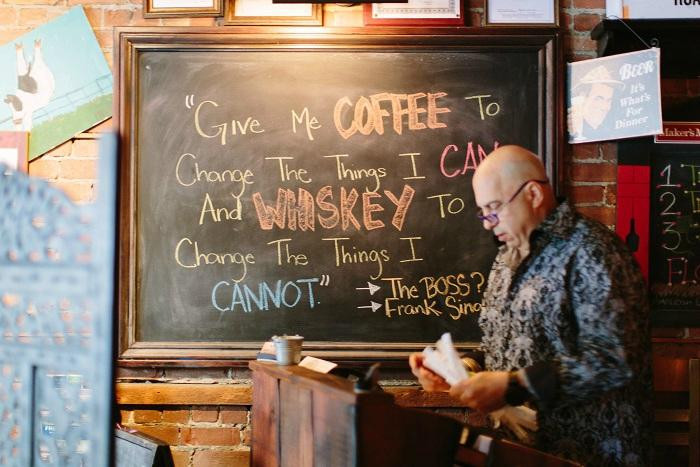 "Give Me COFFEE To
Change The Things I CAN
And WHISKEY To
Change The Things I
CANNOT."
→ The BOSS?
→ Frank Sina
BEER
It's
What's
For
Dinner
Maker's M
1
2
3